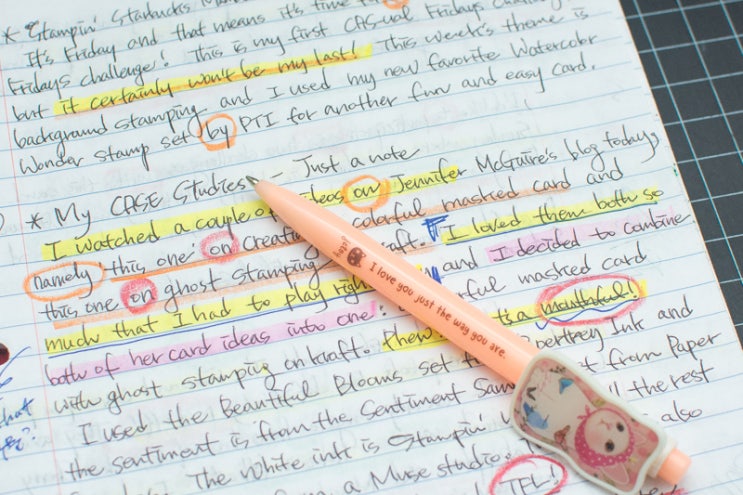 * Stampin' Starbucks
It's Friday and that means it's time to
Fridays challenge! This is my first CASual Fridays
but it certainly won't be my last! This week's theme is
background stamping and I used my new favorite Watercolor
Wonder stamp set by PTI for another fun and easy card.
* My CASE Studies - Just a note
I watched a couple of ideas on Jennifer McGuire's blog today,
namely this one on creating colorful masked card and
this one on ghost stamping kraft. I loved them both so
much that I had to play right and I decided to combine
both of her card ideas into one: masked card
with ghost stamping on kraft. Phew, a mouthful!
I used the Beautiful Blooms set Ink and
the sentiment is from the Sentiment from Paper
The white ink is Stampin' the rest
a Muse studio. also
TFL!
that
happy?
I love you just the way you are.